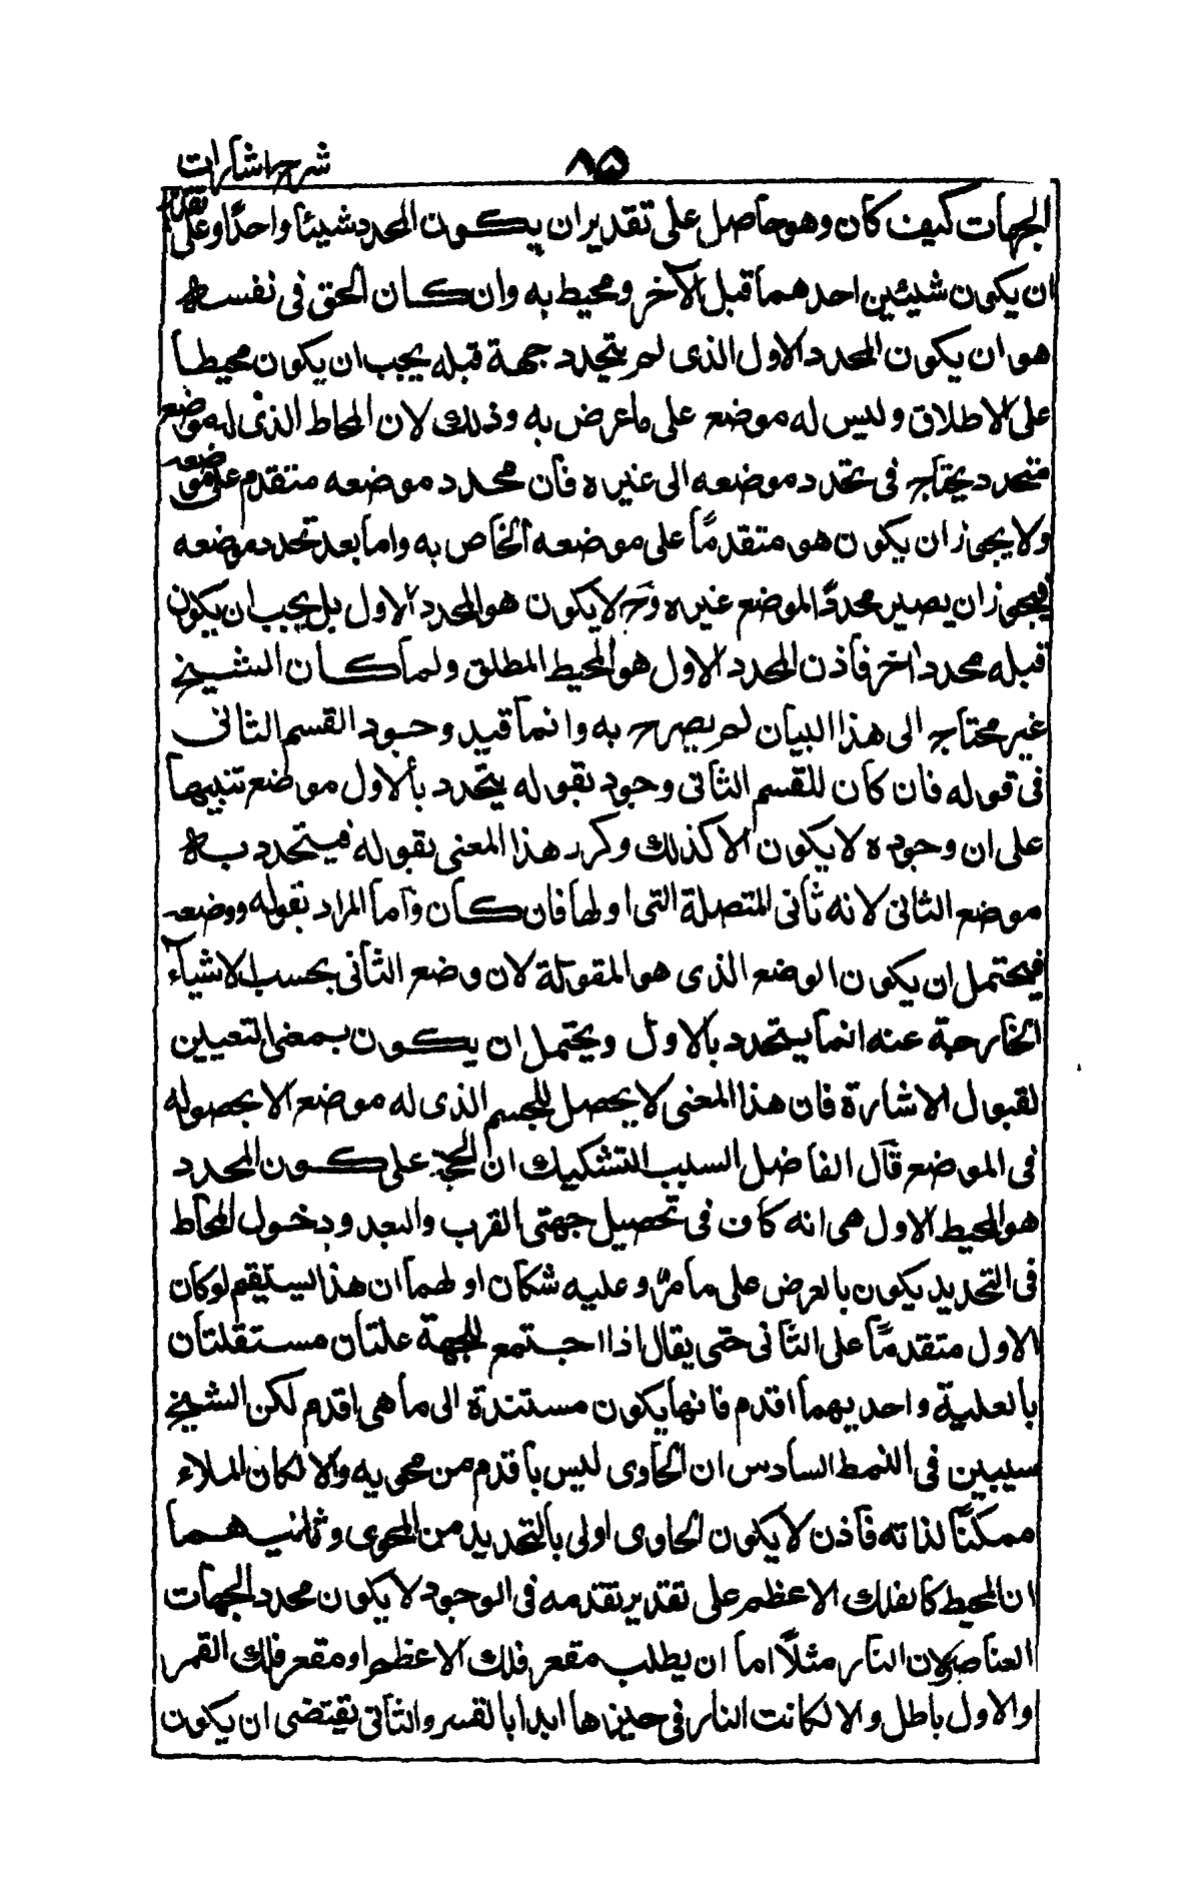 شرح اشارات
٨٥
الجهات كيف كان وهو حاصل على تقدير ان يكون المحدد شيئا واحدًا وعلى تقدير
ان يكون شيئين احدهما قبل الآخر ومحيط به وان كان الحق فى نفسه
هو ان يكون المحدد الاول الذى لم يتحدد جهة قبله يجب ان يكون محيطا
على الاطلاق وليس له موضع على ما عرض به وذلك لان المحاط الذى له موضع
متحدد يحتاج فى تحدد موضعه الى غيره فان محدد موضعه متقدم على موضعه
ولا يجوز ان يكون هو متقدمًا على موضعه الخاص به واما بعد تحدد موضعه
فيجوز ان يصير محددًا لموضع غيره وح لا يكون هو المحدد الاول بل يجب ان يكون
قبله محدد اخر فاذن المحدد الاول هو المحيط المطلق ولما كان الشيخ
غير محتاج الى هذا البيان لم يصرح به وانما قيد وجود القسم الثانى
فى قوله فان كان للقسم الثانى وجود بقوله يتحدد بالاول موضع تنبيها
على ان وجوده لا يكون الا كذلك وكرر هذا المعنى بقوله فيتحدد به
موضع الثانى لانه ثانى المتصلة التى اولها فان كان واما المراد بقوله ووضعه
فيحتمل ان يكون الوضع الذى هو المقولة لان وضع الثانى بحسب الاشياء
الخارجة عنه انما يتحدد بالاول ويحتمل ان يكون بمعنى التعيين
لقبول الاشارة فان هذا المعنى لا يحصل للجسم الذى له موضع الا بحصوله
فى الموضع قال الفاضل السبب التشكيك ان الحجة على كون المحدد
هو المحيط الاول هى انه كان فى تحصيل جهتى القرب والبعد ودخول المحاط
فى التحديد يكون بالعرض على ما مرّ وعليه شكان اولهما ان هذا يستقيم لو كان
الاول متقدمًا على الثانى حتى يقال اذا اجتمع للجهة علتان مستقلتان
بالعلية واحديهما اقدم فانها يكون مستندة الى ما هى اقدم لكن الشيخ
سيبين فى النمط السادس ان الحاوى ليس باقدم من محويه والا لكان الملاء
ممكنًا لذاته فاذن لا يكون الحاوى اولى بالتحديد من المحوى وثانيهما
ان المحيط كالفلك الاعظم على تقدير تقدمه فى الوجود لا يكون محدد الجهات
العناصر لان النار مثلًا اما ان يطلب مقعر فلك الاعظم او مقعر فلك القمر
والاول باطل والا لكانت النار فى حيزها ابدا بالقسر والثانى يقتضى ان يكون